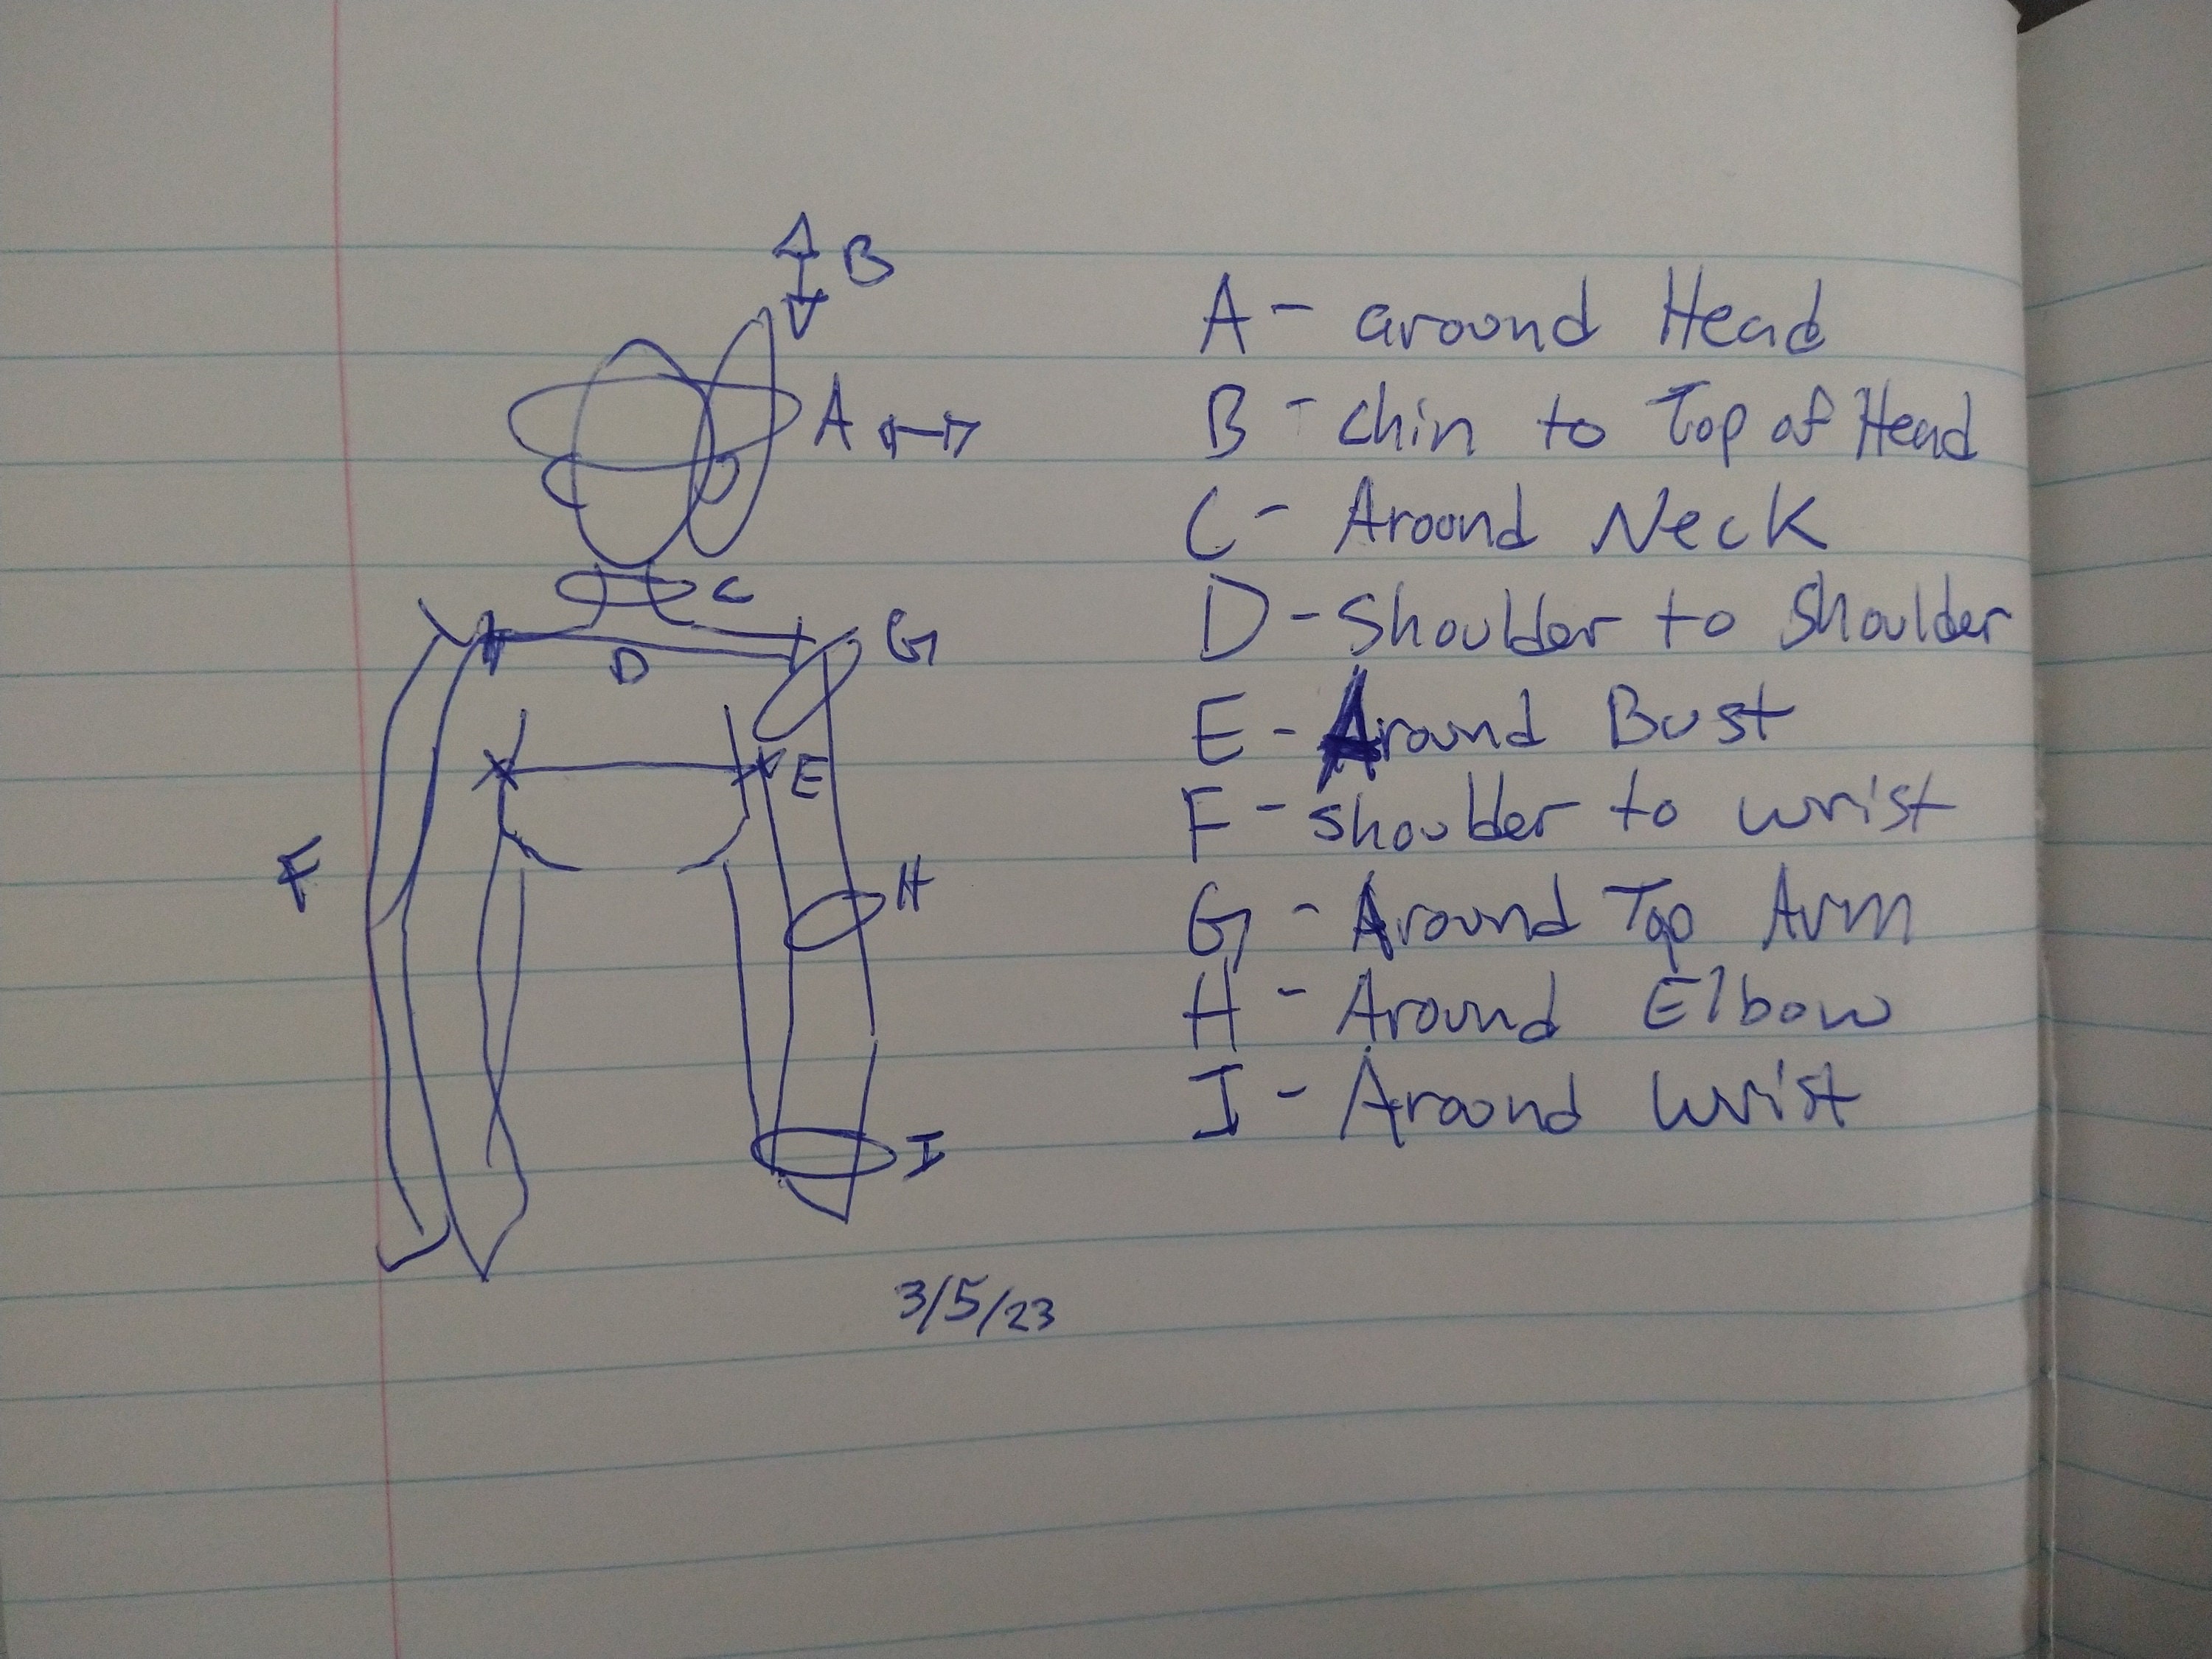 B
A
C
G
D
E
F
H
I
3/5/23
A - around Head
B - chin to Top of Head
C - Around Neck
D - Shoulder to Shoulder
E - Around Bust
F - shoulder to wrist
G - Around Top Arm
H - Around Elbow
I - Around Wrist